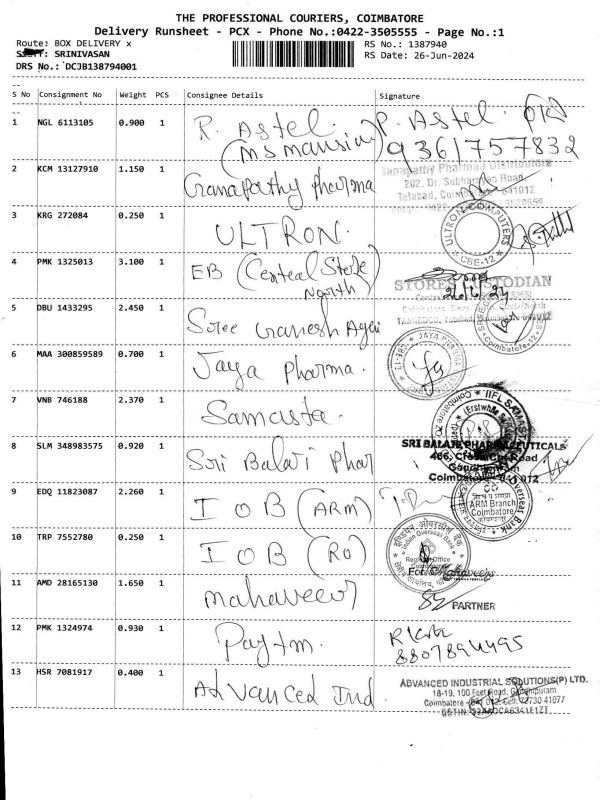 THE PROFESSIONAL COURIERS, COIMBATORE
Delivery Runsheet - PCX - Phone No.:0422-3505555 - Page No.:1
Route: BOX DELIVERY x
RS No.: 1387940
: SRINIVASAN
RS Date: 26-Jun-2024
DRS No.: DCJB138794001
S No Consignment No Weight PCS Consignee Details Signature
1 NGL 6113105 0.900 1 R. Astel. P. Astel.
(MS mansion) 9361757832
2 KCM 13127910 1.150 1 Ganapathy pharma
Pharmaa Distributors
202, Dr. Road
Tatabad, 641012
3 KRG 272084 0.250 1 ULTRON.
ULTRON COMPUTERS
CBE-12
4 PMK 1325013 3.100 1 EB (Central Store
North)
STORES CUSTODIAN
26/6/24
5 DBU 1433295 2.450 1 Sree Ganesh
Coimbatore-12
6 MAA 300859589 0.700 1 Jaya pharma.
JAYA PHARMA
CBE-12
7 VNB 746188 2.370 1 Samasta.
IIFL SAMASTA
(Erstwhile
8 SLM 348983575 0.920 1 Sri Balaji Phar
SRI BALAJI PHARMACEUTICALS
406, Cross Cut Road
Gandhipuram
Coimbatore - 641 012
9 EDQ 11823087 2.260 1 IOB (ARM)
Overseas Bank
ARM Branch
Coimbatore
10 TRP 7552780 0.250 1 IOB (RO)
इण्डियन ओवरसीज़ बैंक
Indian Overseas Bank
Regional Office
11 AMD 28165130 1.650 1 mahaveer
For Mahaveers
PARTNER
12 PMK 1324974 0.930 1 Paytm.
8807894495
13 HSR 7081917 0.400 1 Advanced Ind
ADVANCED INDUSTRIAL SOLUTIONS(P) LTD.
18-19, 100 Feet Road, Gandhipuram
Coimbatore - 641 012. Cell: 41977